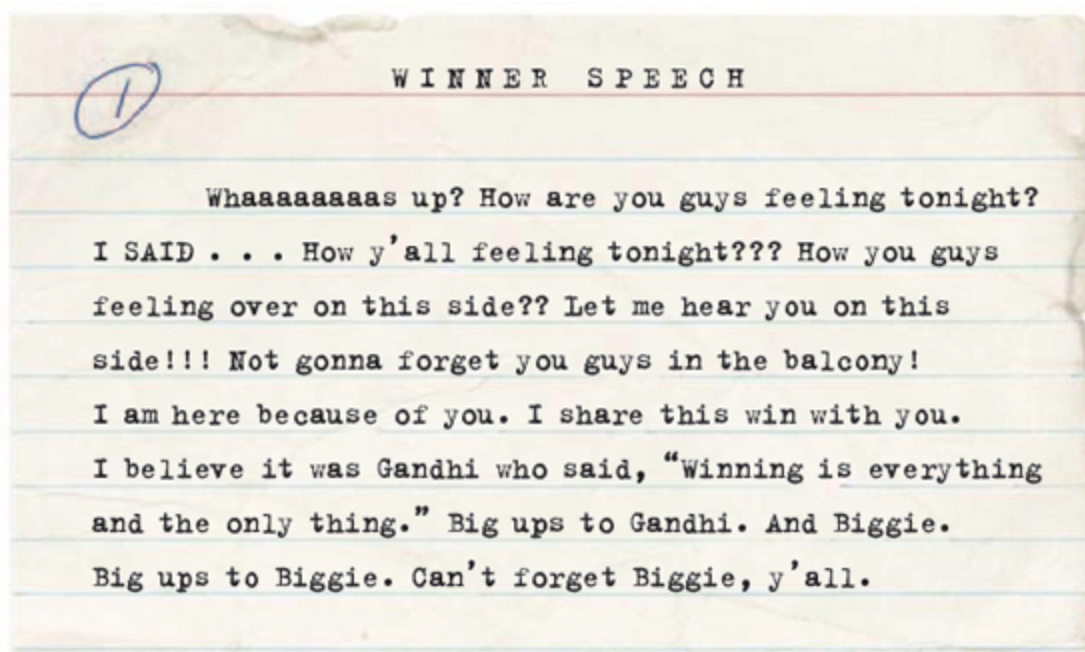 1
WINNER SPEECH
Whaaaaaaaaas up? How are you guys feeling tonight?
I SAID . . . How y'all feeling tonight??? How you guys
feeling over on this side?? Let me hear you on this
side!!! Not gonna forget you guys in the balcony!
I am here because of you. I share this win with you.
I believe it was Gandhi who said, “Winning is everything
and the only thing.” Big ups to Gandhi. And Biggie.
Big ups to Biggie. Can't forget Biggie, y'all.